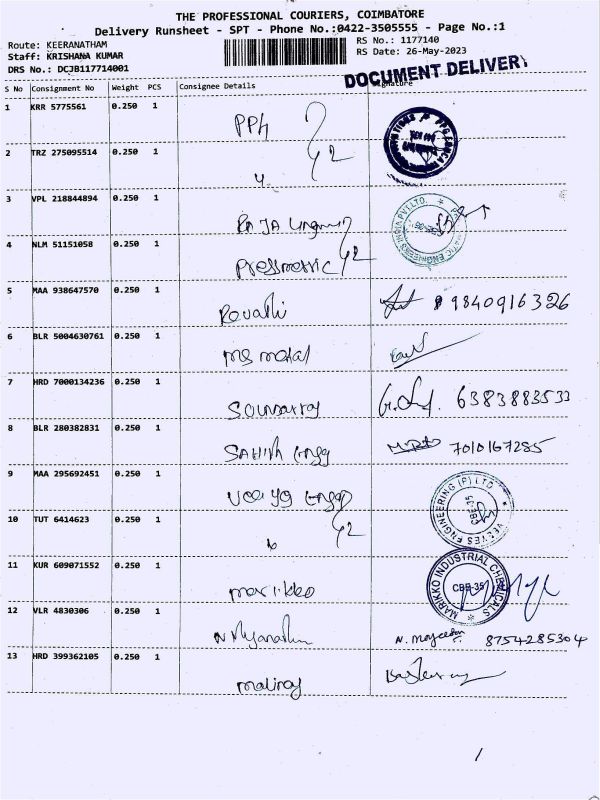 THE PROFESSIONAL COURIERS, COIMBATORE
Delivery Runsheet - SPT - Phone No.:0422-3505555 - Page No.:1
Route: KEERANATHAM RS No.: 1177140
Staff: KRISHANA KUMAR RS Date: 26-May-2023
DRS No.: DCJB117714001
DOCUMENT DELIVERY
S No Consignment No Weight PCS Consignee Details Signature
1 KRR 5775561 0.250 1 PPh
2 TRZ 275095514 0.250 1
3 VPL 218844894 0.250 1
4 NLM 51151058 0.250 1 Pressmatric
5 MAA 938647570 0.250 1 Revathi 9840916326
6 BLR 5004630761 0.250 1 MS metal
7 HRD 7000134236 0.250 1 Sounarraj 6383883533
8 BLR 280382831 0.250 1 SAHIN Engg 7010167285
9 MAA 295692451 0.250 1
VEEYES ENGINEERING (P) LTD. CBE-35
10 TUT 6414623 0.250 1
11 KUR 609071552 0.250 1 marikko
MARIKKO INDUSTRIAL CHEMICALS CBE-35
12 VLR 4830306 0.250 1 8754285304
13 HRD 399362105 0.250 1
1